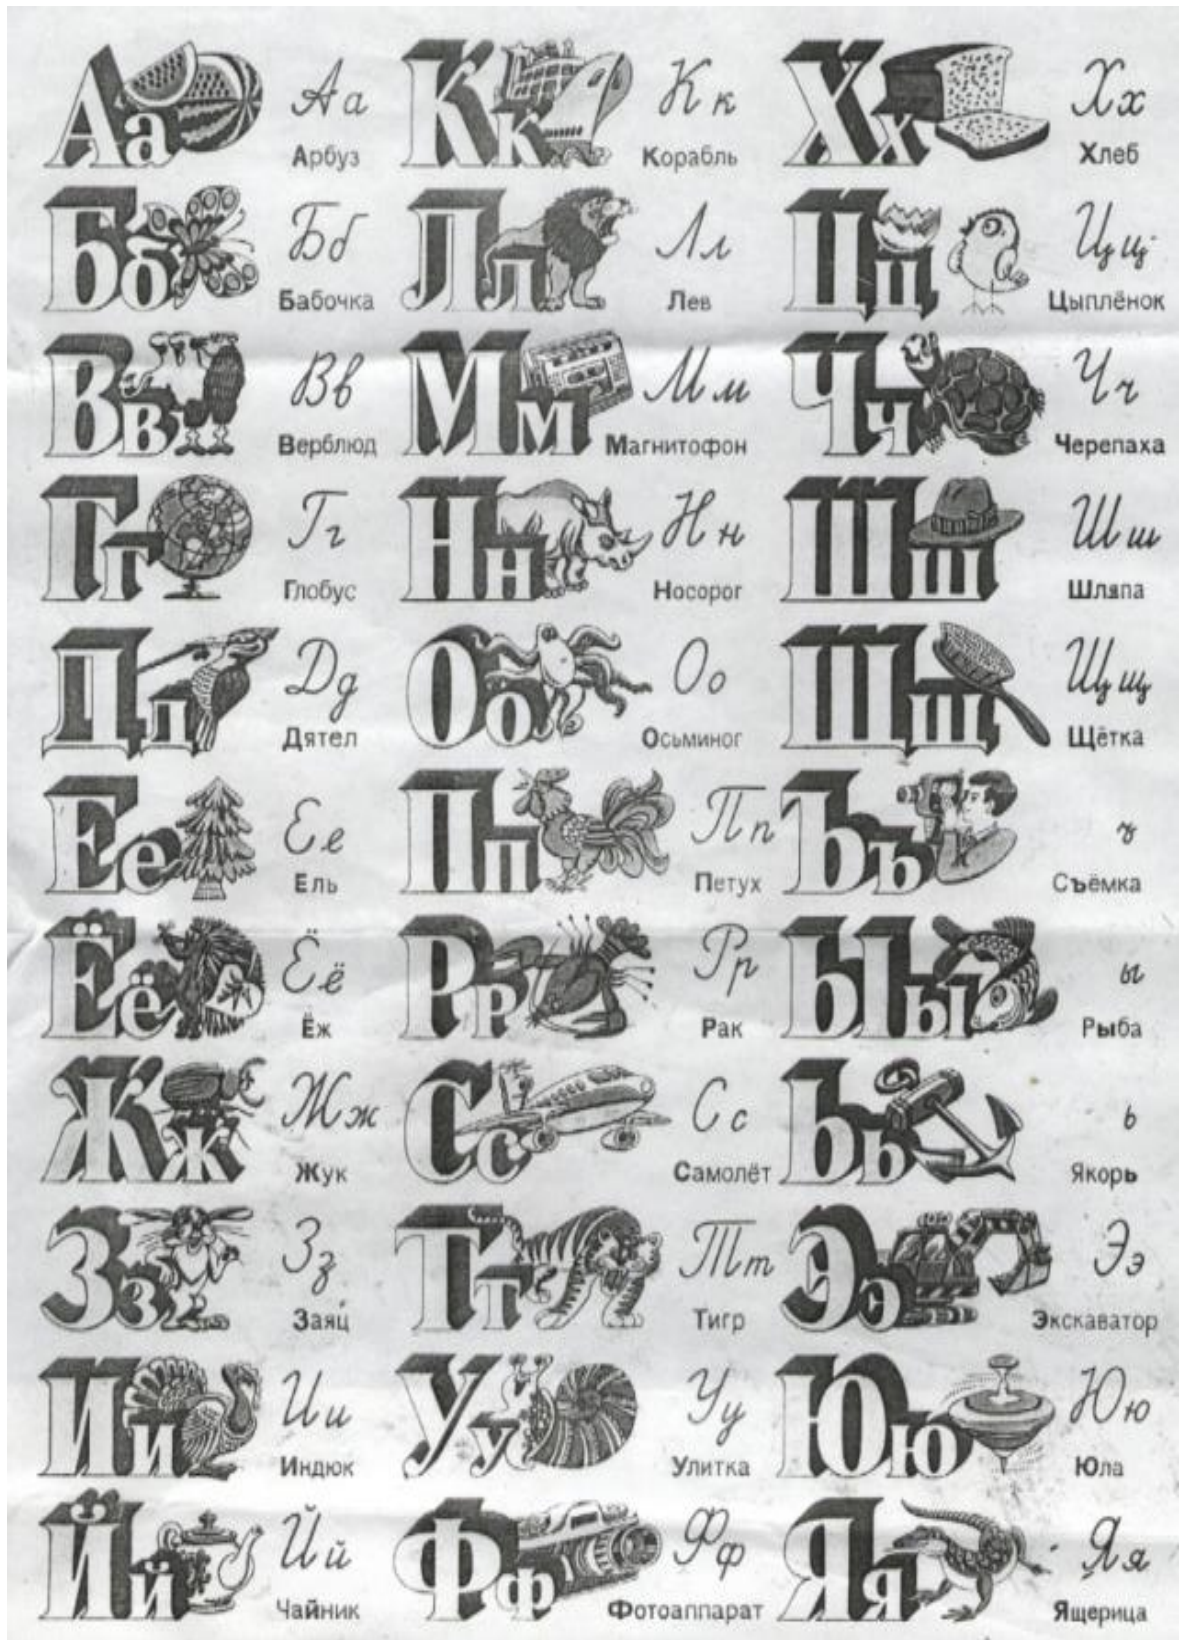 Аа Аа
Арбуз
Бб Бб
Бабочка
Вв Вв
Верблюд
Гг Гг
Глобус
Дд Дд
Дятел
Ее Ее
Ель
Ёё Ёё
Ёж
Жж Жж
Жук
Зз Зз
Заяц
Ии Ии
Индюк
Йй Йй
Чайник
Кк Кк
Корабль
Лл Лл
Лев
Мм Мм
Магнитофон
Нн Нн
Носорог
Оо Оо
Осьминог
Пп Пп
Петух
Рр Рр
Рак
Сс Сс
Самолёт
Тт Тт
Тигр
Уу Уу
Улитка
Фф Фф
Фотоаппарат
Хх Хх
Хлеб
Цц Цц
Цыплёнок
Чч Чч
Черепаха
Шш Шш
Шляпа
Щщ Щщ
Щётка
Ъъ ъ
Съёмка
Ыы ы
Рыба
Ьь ь
Якорь
Ээ Ээ
Экскаватор
Юю Юю
Юла
Яя Яя
Ящерица